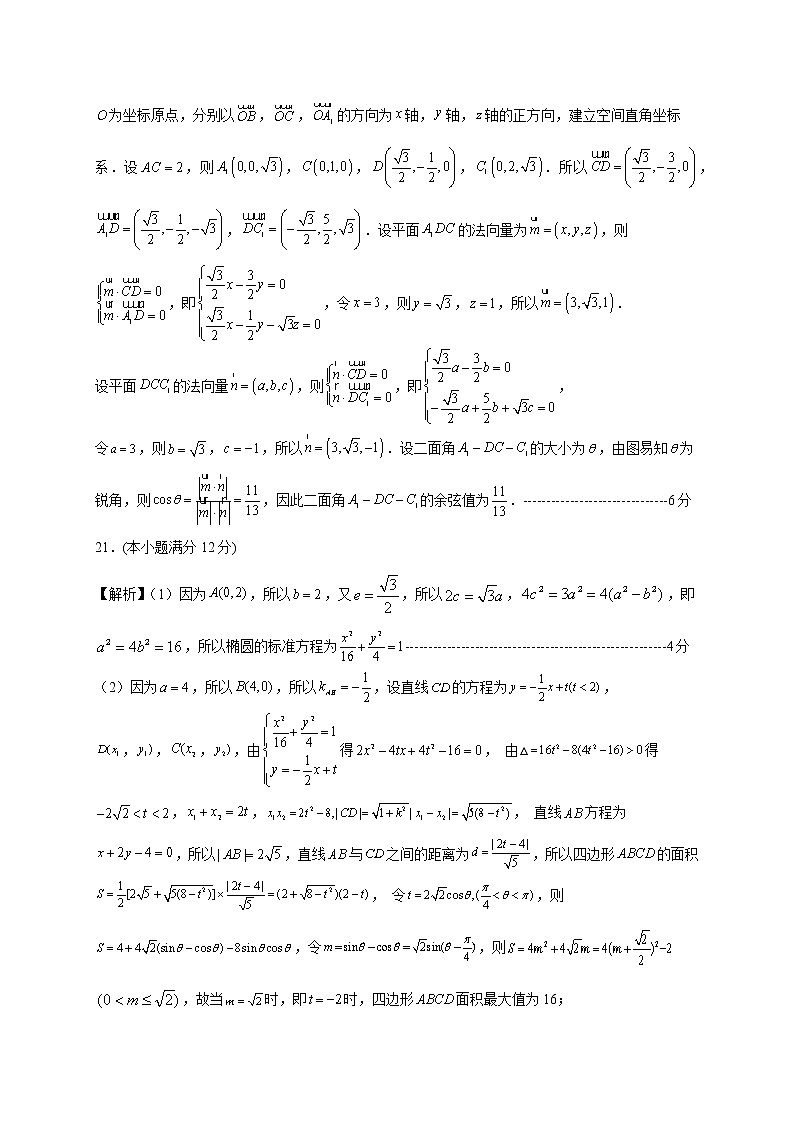 O为坐标原点，分别以OB，OC，OA₁的方向为x轴，y轴，z轴的正方向，建立空间直角坐标
系．设AC=2，则A₁(0,0,√3)，C(0,1,0)，D(√3/2,-1/2,0)，C₁(0,2,√3)．所以CD=(√3/2,-3/2,0)，
A₁D=(√3/2,-1/2,-√3)，DC₁=(-√3/2,5/2,√3)．设平面A₁DC的法向量为m=(x,y,z)，则
{m·CD=0 m·A₁D=0，即{√3/2x-3/2y=0 √3/2x-1/2y-√3z=0，令x=3，则y=√3，z=1，所以m=(3,√3,1)．
设平面DCC₁的法向量n=(a,b,c)，则{n·CD=0 n·DC₁=0，即{√3/2a-3/2b=0 -√3/2a+5/2b+√3c=0，
令a=3，则b=√3，c=-1，所以n=(3,√3,-1)．设二面角A₁-DC-C₁的大小为θ，由图易知θ为
锐角，则cosθ=|m·n|/|m|·|n|=11/13，因此二面角A₁-DC-C₁的余弦值为11/13．-------------------------------6分
21．(本小题满分12分)
【解析】（1）因为A(0,2)，所以b=2，又e=√3/2，所以2c=√3a，4c²=3a²=4(a²-b²)，即
a²=4b²=16，所以椭圆的标准方程为x²/16+y²/4=1---------------------------------------------------------4分
（2）因为a=4，所以B(4,0)，所以k_AB=-1/2，设直线CD的方程为y=-1/2x+t(t<2)，
D(x₁，y₁)，C(x₂，y₂)，由{x²/16+y²/4=1 y=-1/2x+t得2x²-4tx+4t²-16=0， 由△=16t²-8(4t²-16)>0得
-2√2<t<2，x₁+x₂=2t，x₁x₂=2t²-8,|CD|=√(1+k²)|x₁-x₂|=√(5(8-t²))， 直线AB方程为
x+2y-4=0，所以|AB|=2√5，直线AB与CD之间的距离为d=|2t-4|/√5，所以四边形ABCD的面积
S=1/2[2√5+√(5(8-t²))]×|2t-4|/√5=(2+√(8-t²))(2-t)， 令t=2√2cosθ,(π/4<θ<π)，则
S=4+4√2(sinθ-cosθ)-8sinθcosθ，令m=sinθ-cosθ=√2sin(θ-π/4)，则S=4m²+4√2m=4(m+√2/2)²-2
(0<m≤√2)，故当m=√2时，即t=-2时，四边形ABCD面积最大值为16；